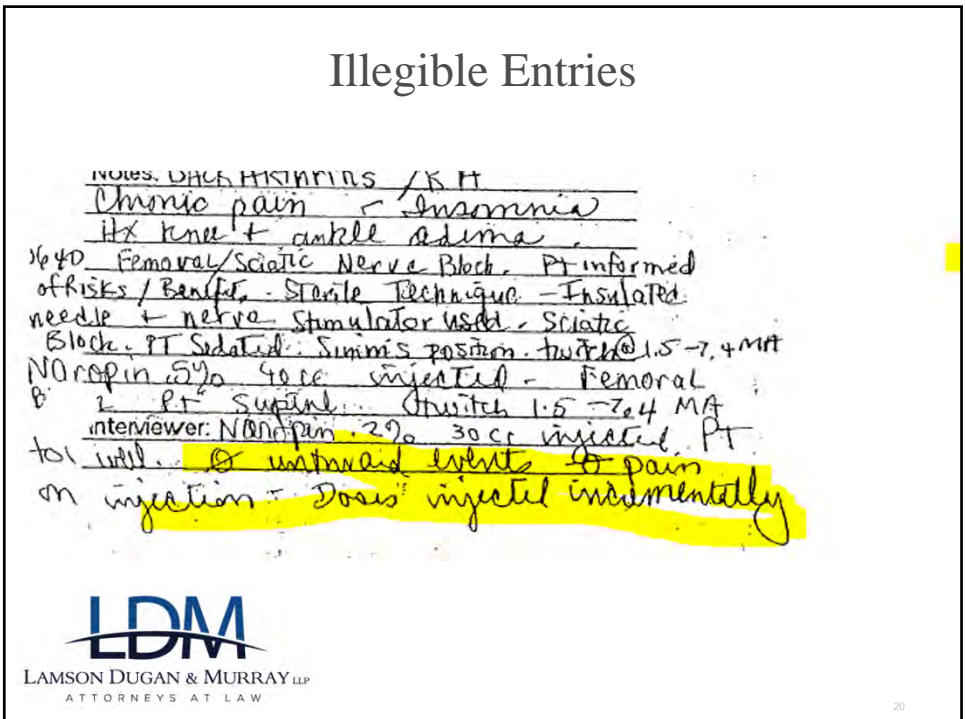 Illegible Entries
Notes: BACK Arthritis / RA
Chronic pain - Insomnia
HX Knee + ankle edema.
1640 Femoral/Sciatic Nerve Block. PT informed
of Risks / Benefits - Sterile Technique - Insulated
needle + nerve stimulator used. Sciatic
Block. PT Sedated. position. twitch @ 1.5 → .4 MA
Naropin .5% 40 cc injected - Femoral
B PT Supine. twitch 1.5 → .4 MA
nterviewer: Naropin .2% 30 cc injected PT
tol well. events pain
on injection - Doses injected incrementally
LDM
LAMSON DUGAN & MURRAY LLP
ATTORNEYS AT LAW
20